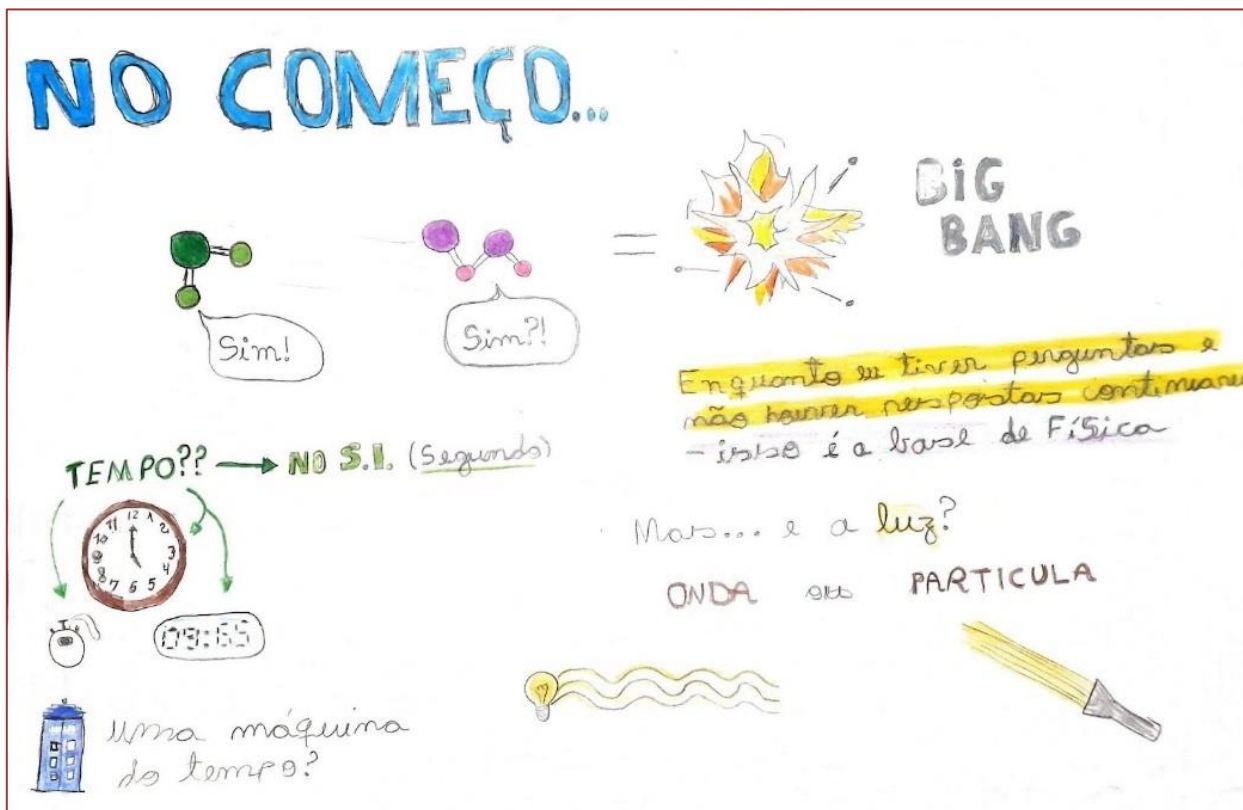 NO COMEÇO...
BIG
BANG
Sim!
Sim?!
=
Enquanto eu tiver perguntas e
não houver respostas continuarei
- isso é a base de FíSica
TEMPO?? → NO S.I. (Segundo)
11 12 1
10 2
9 3
8 4
7 6 5
09:65
Mas... e a luz?
ONDA ou PARTICULA
uma máquina
do tempo?